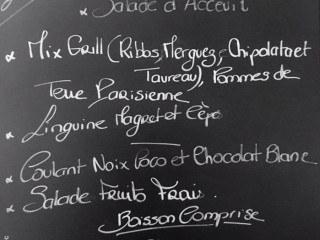 Salade d'Acceuil
Mix Grill (Ribbs, Merguez, Chipolata et
Taureau), Pommes de
Terre Parisienne
Linguine Magret et Cèpe
Coulant Noix Coco et Chocolat Blanc
Salade Fruits Frais.
Boisson Comprise